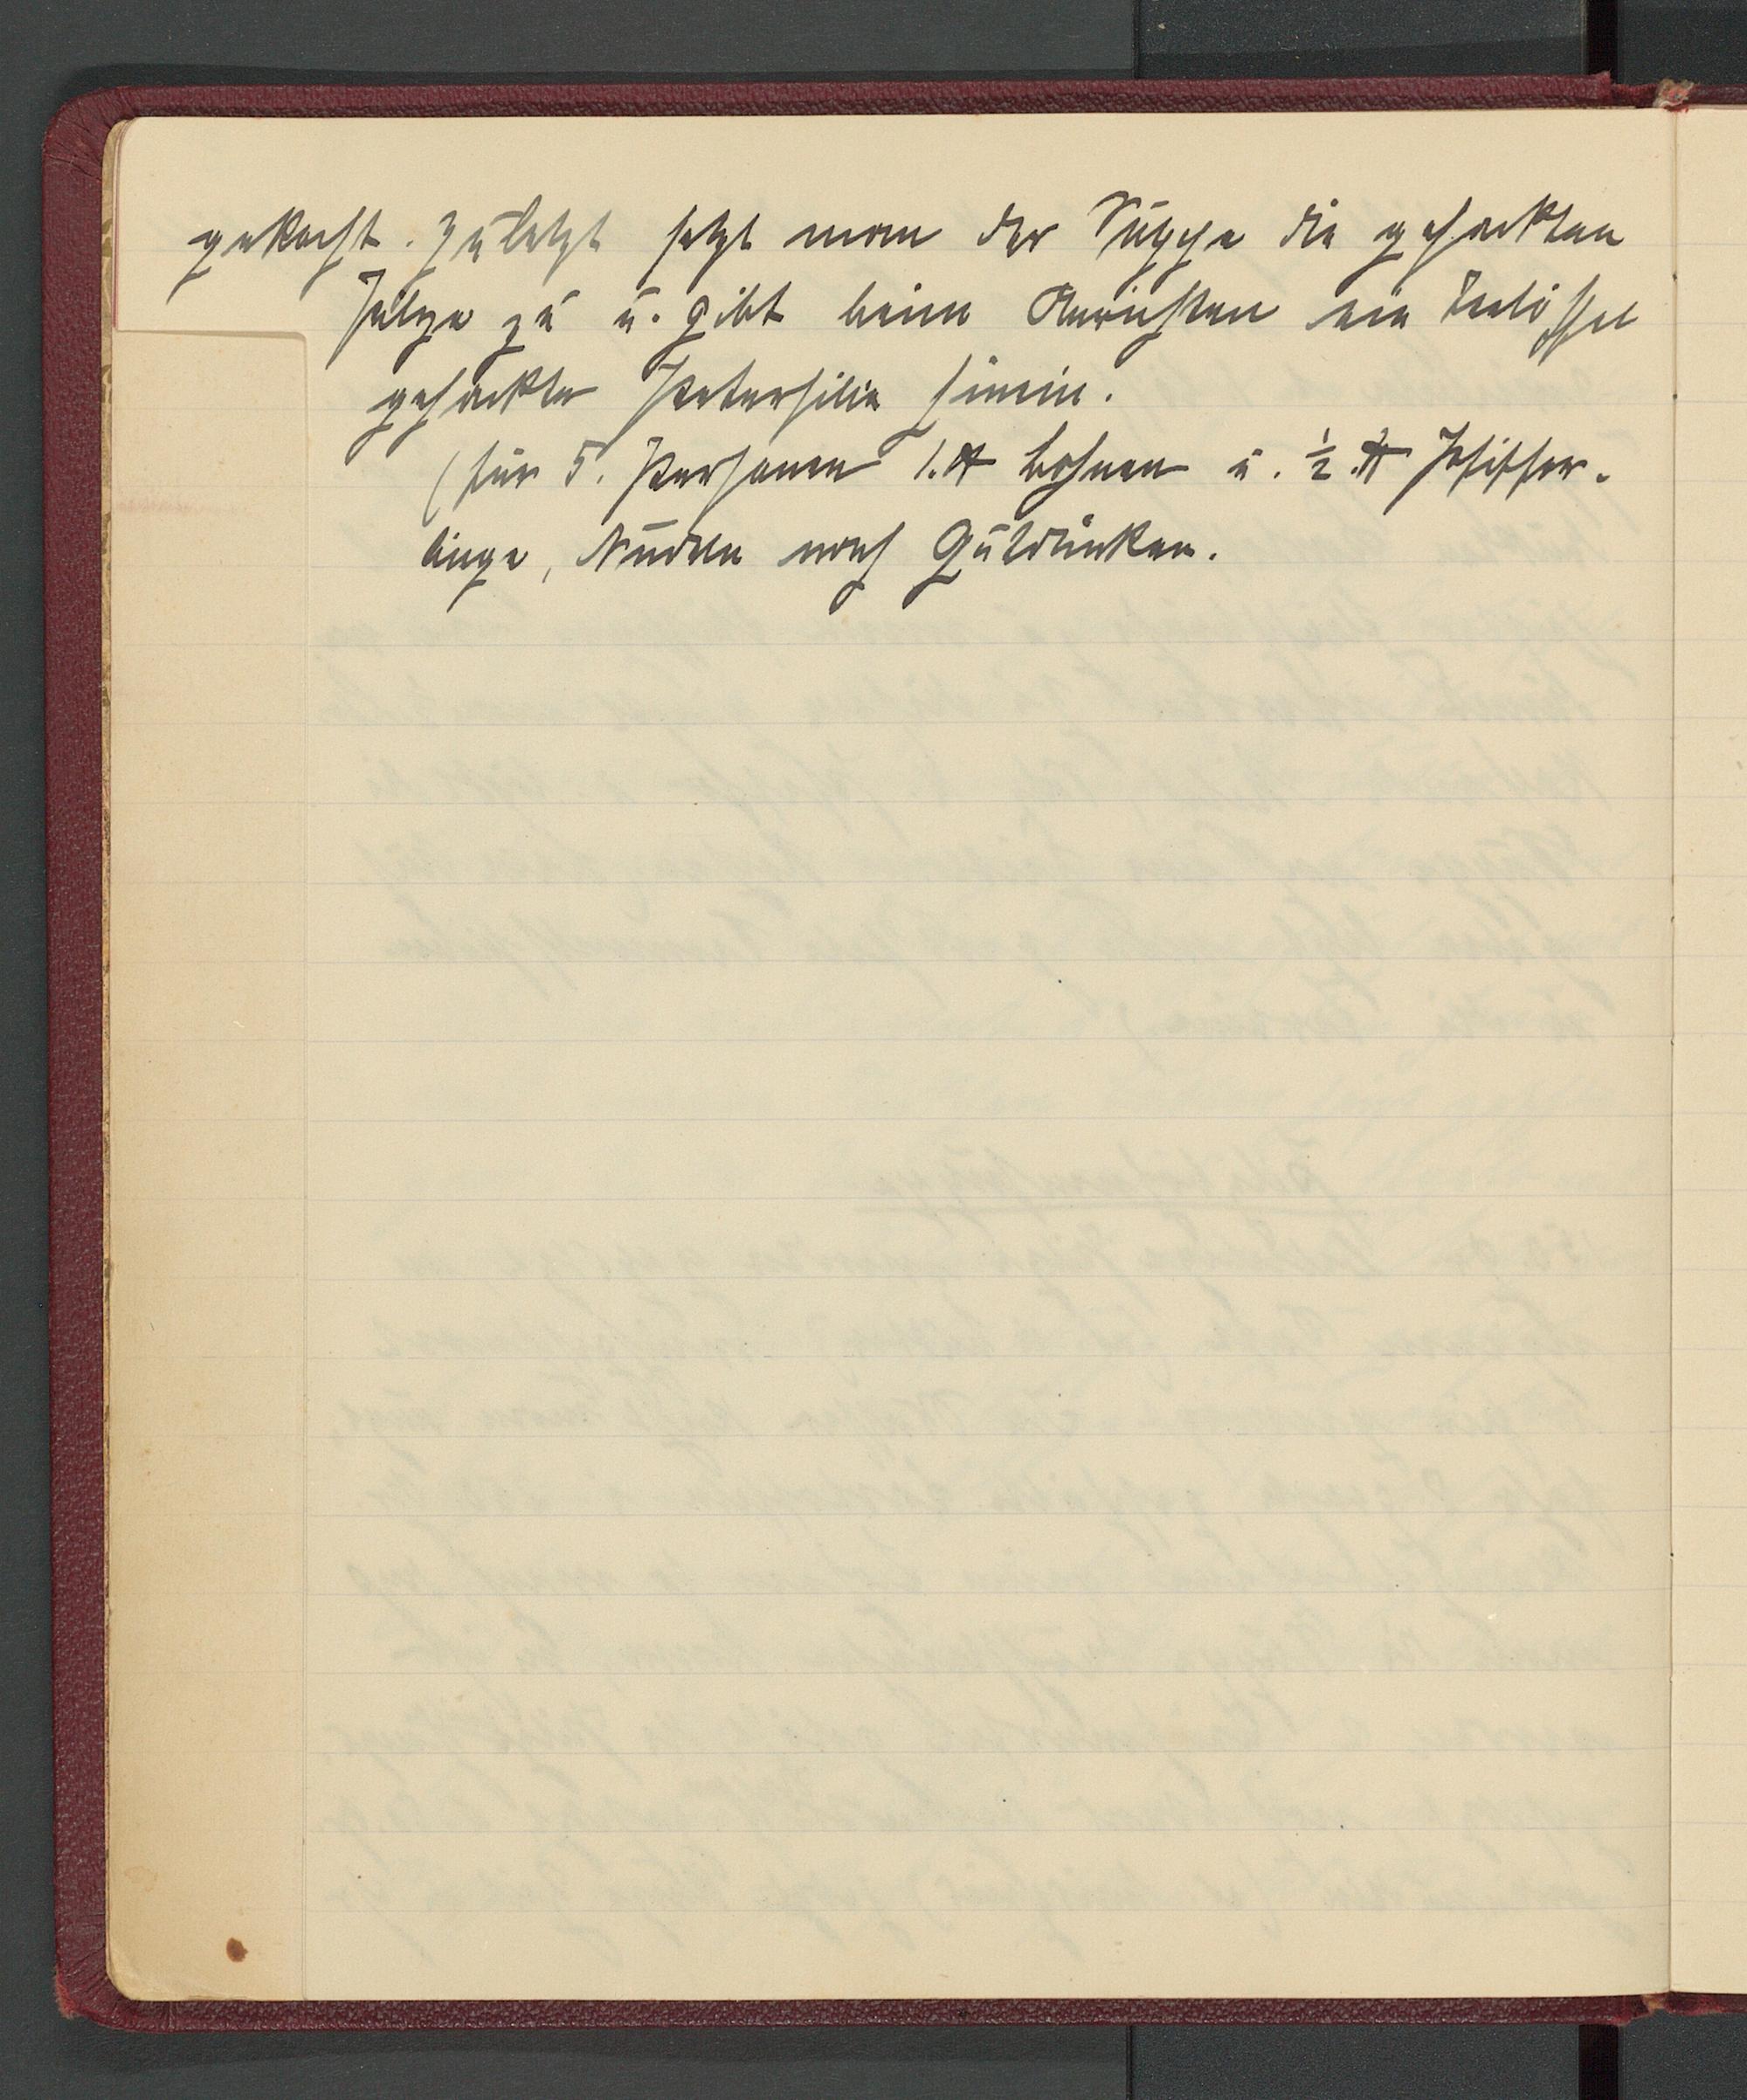 gekocht. Zuletzt setzt man der Suppe die gehackten
Pilze zu u. gibt beim Anrichten ein Teelöffel
gehackter Petersilie hinein.
(für 5. Personen 1. ℔ Bohnen u. ½ ℔ Pfiffer-
linge, Nudeln nach Gutdünken.